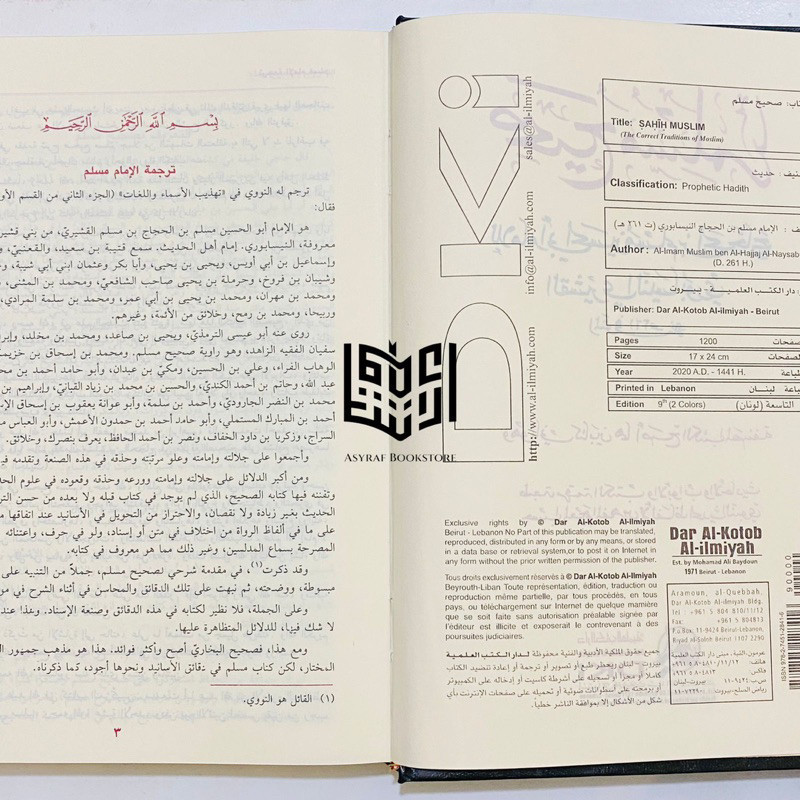 صحيح مسلم
Title: ṢAḤĪḤ MUSLIM
(The Correct Traditions of Muslim)
حديث
Classification: Prophetic Hadith
الإمام مسلم بن الحجاج النيسابوري (ت ٢٦١ هـ)
Author : Al-Imam Muslim ben Al-Hajjaj Al-Naysab
(D. 261 H.)
دار الكتب العلمية - بيروت
Publisher: Dar Al-Kotob Al-ilmiyah - Beirut
Pages 1200
Size 17 x 24 cm
Year 2020 A.D. - 1441 H.
Printed in Lebanon لبنان
Edition 9th (2 Colors) التاسعة (لونان)
sales@al-ilmiyah.com
info@al-ilmiyah.com
http://www.al-ilmiyah.com
Exclusive rights by © Dar Al-Kotob Al-ilmiyah
Beirut - Lebanon No Part of this publication may be translated,
reproduced, distributed in any form or by any means, or stored
in a data base or retrieval system,or to post it on Internet in
any form without the prior written permission of the publisher.
Tous droits exclusivement réservés à © Dar Al-Kotob Al-ilmiyah
Beyrouth-Liban Toute représentation, édition, traduction ou
reproduction même partielle, par tous procédés, en tous
pays, ou téléchargement sur Internet de quelque manière
que se soit faite sans autorisation préalable signée par
l'éditeur est illicite et exposerait le contrevenant à des
poursuites judiciaires.
جميع حقوق الملكية الادبية والفنية محفوظة لـدار الـكتب العلمية
بيروت - لبنان ويحظر طبع أو تصوير أو ترجمة أو إعادة تنضيد الكتاب
كاملا أو مجزأ أو تسجيله على أشرطة كاسيت أو إدخاله على الكمبيوتر
أو برمجته على أسطوانات ضوئية أو تحميله على صفحات الإنترنت بأي
شكل من الأشكال إلا بموافقة الناشر خطيا.
Dar Al-Kotob
Al-ilmiyah
Est. by Mohamad Ali Baydoun
1971 Beirut - Lebanon
Aramoun, al-Quebbah,
Dar Al-Kotob Al-ilmiyah Bldg.
Tel : +961 5 804 810/11/12
Fax: +961 5 804813
P.o.Box: 11-9424 Beirut-Lebanon,
Riyad al-Soloh Beirut 1107 2290
عرمون، القبة، مبنى دار الكتب العلمية
90000
بسم الله الرحمن الرحيم
ترجمة الإمام مسلم
ترجم له النووي في «تهذيب الأسماء واللغات» (الجزء الثاني من القسم الأو
فقال:
هو الإمام أبو الحسين مسلم بن الحجاج بن مسلم القشيري، من بني قشير
معروفة، النيسابوري. إمام أهل الحديث. سمع قتيبة بن سعيد، والقعنبي،
وإسماعيل بن أبي أويس، ويحيى بن يحيى، وأبا بكر وعثمان ابني أبي شيبة،
وشيبان بن فروخ، وحرملة بن يحيى صاحب الشافعي، ومحمد بن المثنى،
ومحمد بن مهران، ومحمد بن يحيى بن أبي عمر، ومحمد بن سلمة المرادي،
وربيحا، ومحمد بن رمح، وخلائق من الأئمة، وغيرهم.
روى عنه أبو عيسى الترمذي، ويحيى بن صاعد، ومحمد بن مخلد، وإبراهي
سفيان الفقيه الزاهد، وهو راوية صحيح مسلم. ومحمد بن إسحاق بن خزيم
الوهاب الفراء، وعلي بن الحسين، ومكي بن عبدان، وأبو حامد أحمد بن محم
عبد الله، وحاتم بن أحمد الكندي، والحسين بن محمد بن زياد القباني، وإبراهيم بن
محمد بن النضر الجارودي، وأحمد بن سلمة، وأبو عوانة يعقوب بن إسحاق الإس
أحمد بن المبارك المستملي، وأبو حامد أحمد بن حمدون الأعمش، وأبو العباس م
السراج، وزكريا بن داود الخفاف، ونصر بن أحمد الحافظ، يعرف بنصرك، وخلائق.
وأجمعوا على جلالته وإمامته وعلو مرتبته وحذقه في هذه الصنعة وتقدمه في
ومن أكبر الدلائل على جلالته وإمامته وورعه وحذقه وقعوده في علوم الحد
وتفننه فيها كتابه الصحيح، الذي لم يوجد في كتاب قبله ولا بعده من حسن التر
الحديث بغير زيادة ولا نقصان، والاحتراز من التحويل في الأسانيد عند اتفاقها م
على ما في ألفاظ الرواة من اختلاف في متن أو إسناد، ولو في حرف، واعتنائه
المصرحة بسماع المدلسين، وغير ذلك مما هو معروف في كتابه.
وقد ذكرت(١)، في مقدمة شرحي لصحيح مسلم، جملاً من التنبيه على
مبسوطة، ووضحته، ثم نبهت على تلك الدقائق والمحاسن في أثناء الشرح في مو
وعلى الجملة، فلا نظير لكتابه في هذه الدقائق وصنعة الإسناد. وهذا عند
لا شك فيها، للدلائل المتظاهرة عليها.
ومع هذا، فصحيح البخاري أصح وأكثر فوائد. هذا هو مذهب جمهور ال
المختار، لكن كتاب مسلم في دقائق الأسانيد ونحوها أجود، كما ذكرناه.
(١) القائل هو النووي.
٣
ASYRAF BOOKSTORE